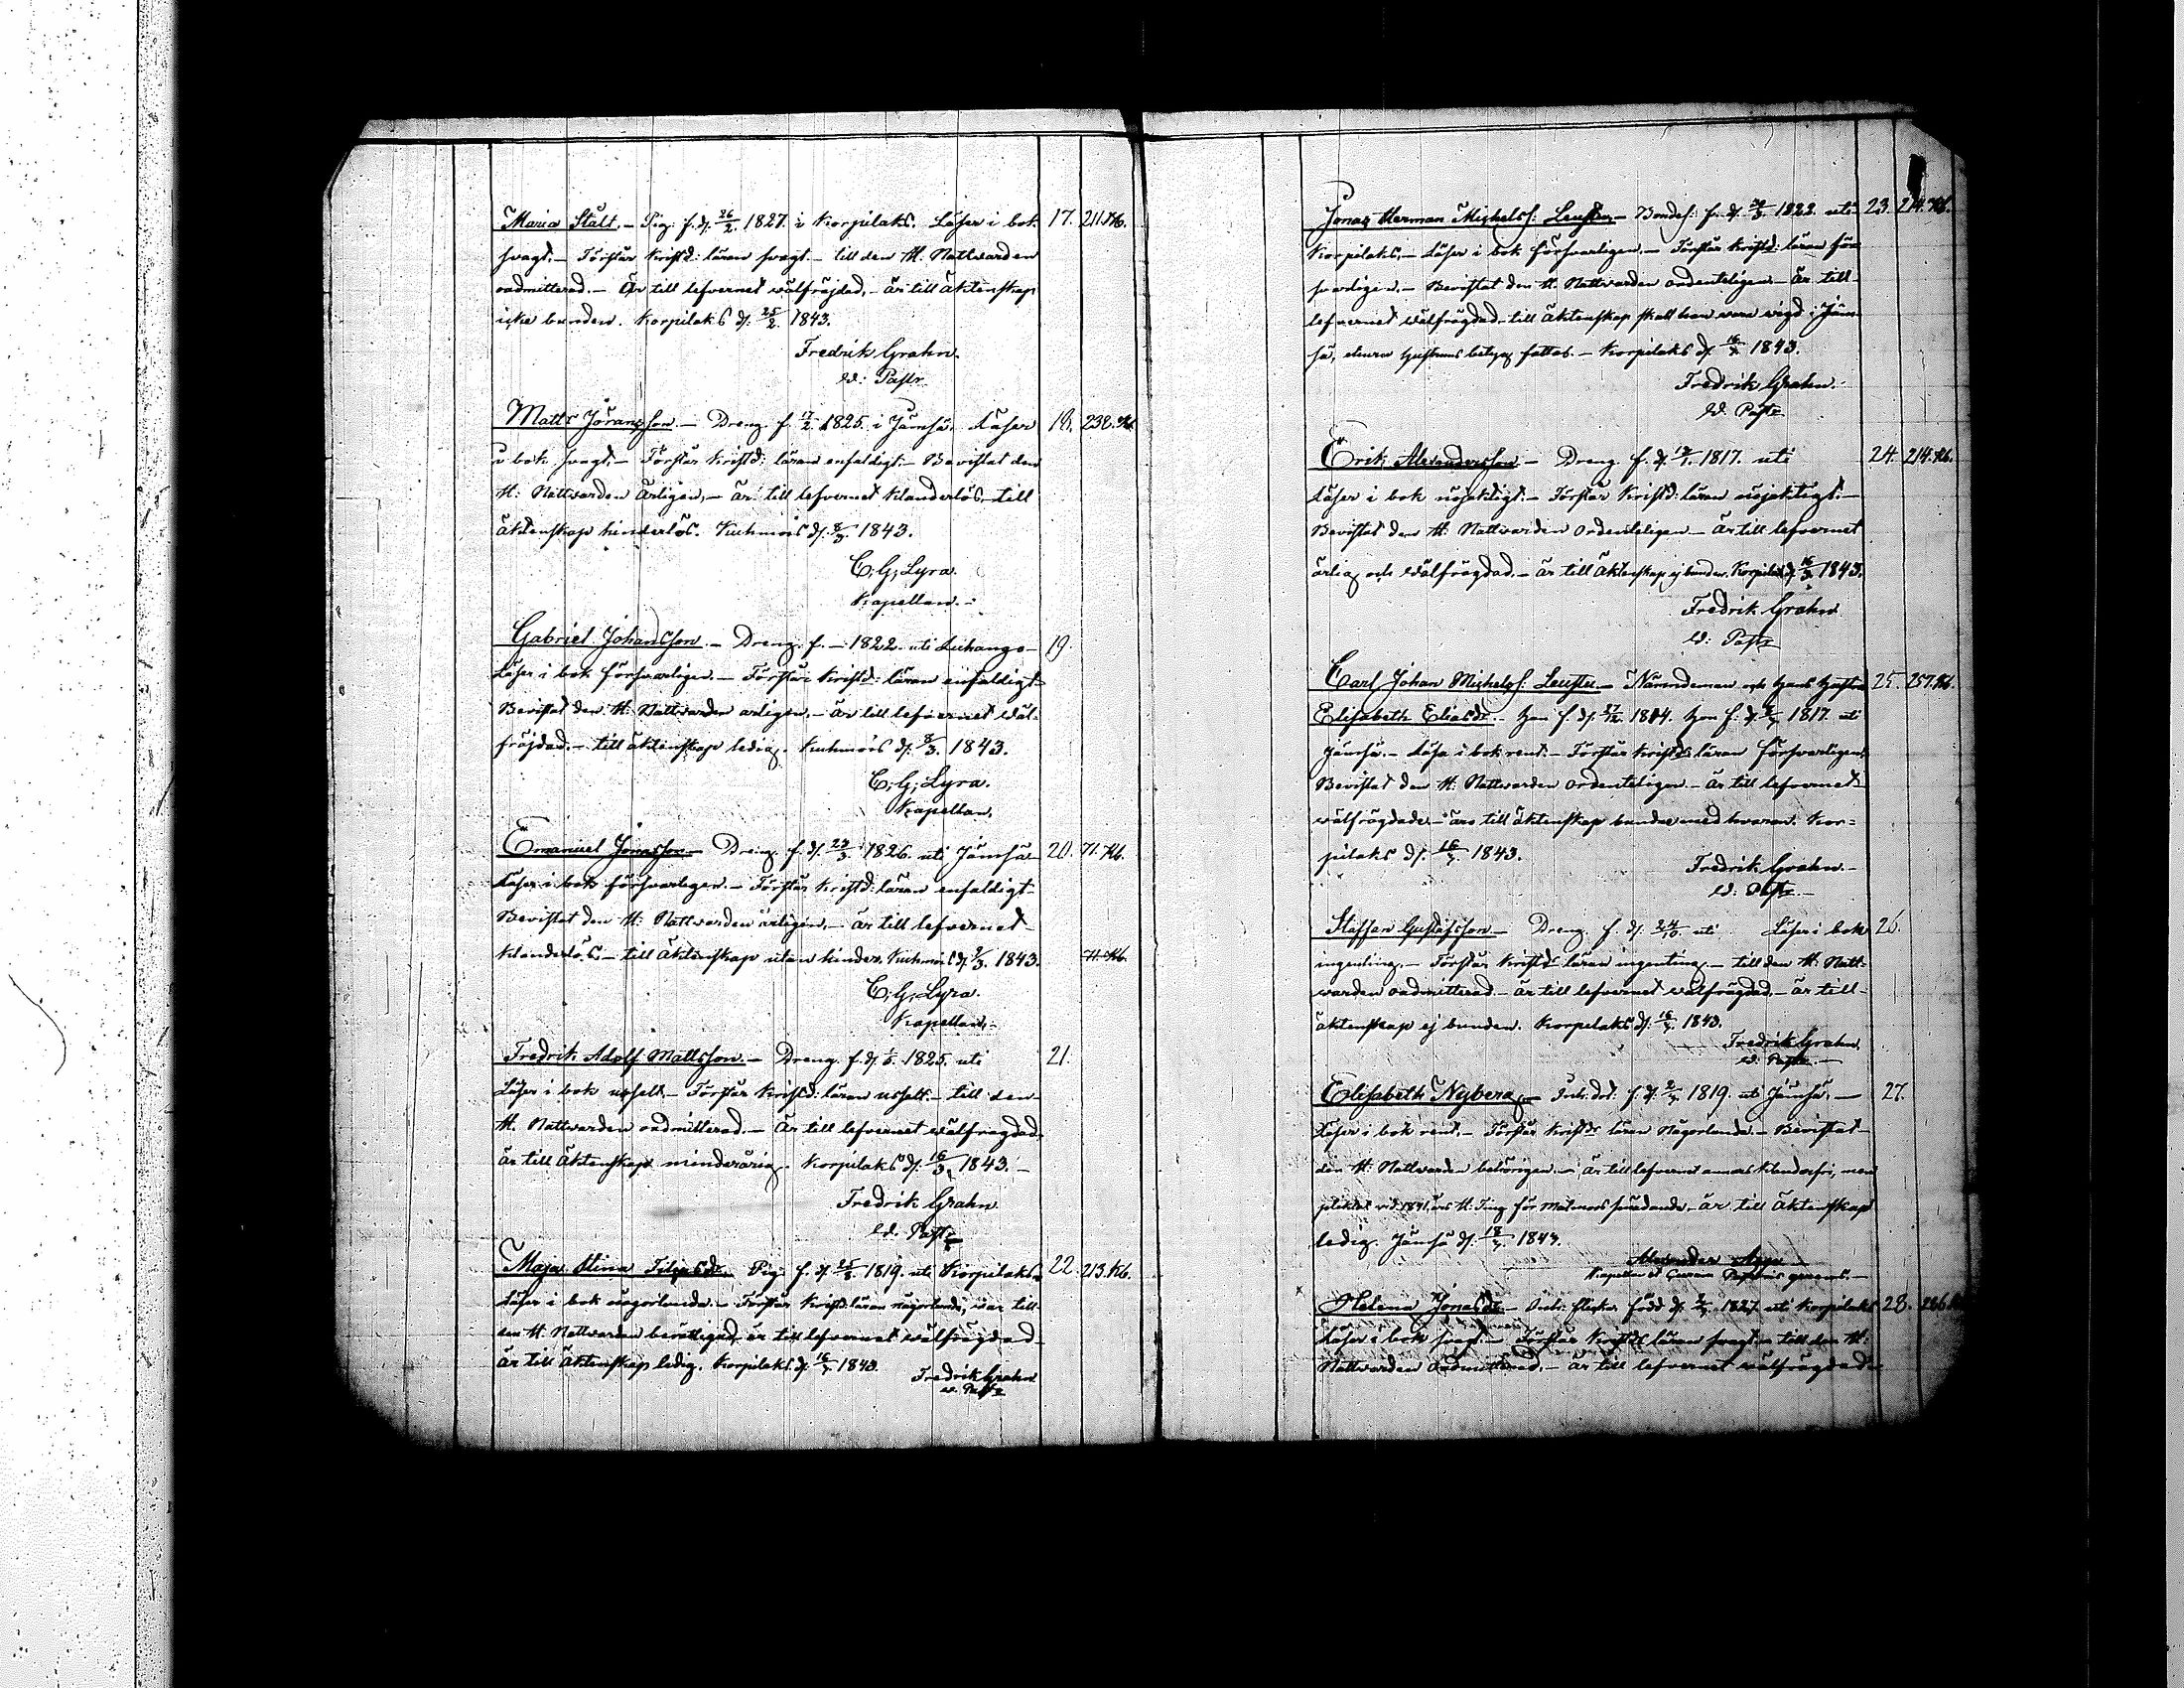 Maria Stält. – Pig. f. d. 26/2. 1827. i Korpilaks. Läser i bok 17. 211. Kb.
svagt. – Förstår Kristd: läran svagt – till den H. Nattvarden
oadmitterad. – Är till lefvernet välfräjdad, – är till äktenskap
icke bunden. Korpilaks d. 25/2. 1843.
Fredrik Grahn.
v. Pastr.
Matts Göransson. – Dreng. f. 17/2 1825. i Jämsä. Läser 18. 232. Kb.
i bok svagt. – Förstår Kristd: läran enfaldigt – Bevistat den
H: Nattvarden årligen, – är till lefvernet klanderlös, – till
äktenskap hinderlös. Kuhmois d. 8/3. 1843.
C. G. Lyra.
Kapellan. –
Gabriel Johansson. – Dreng. f. – 1822. uti Luhango – 19.
Läser i bok försvarligen. – Förstår Kristd: läran enfaldigt –
Bevistat den H: Nattvarden årligen. – är till lefvernet väl-
fräjdad. – till äktenskap ledig. Kuhmois d. 8/3. 1843.
C. G. Lyra.
Kapellan.
Emanuel Jonasson – Dreng. f. d. 23/3. 1826. uti Jämsä – 20. 71. Kb.
Läser i bok försvarligen. – Förstår Kristd: läran enfaldigt –
Bevistat den H: Nattvarden årligen, – är till lefvernet
klanderlös. – till äktenskap utan hinder. Kuhmois d. 9/3. 1843. 71. Kb.
C. G. Lyra.
Kapellan. –
Fredrik Adolf Mattsson. – Dreng. f. d. 1825. uti 21.
Läser i bok uselt. – Förstår Kristd: läran uselt. – till den
H. Nattvarden oadmitterad. – Är till lefvernet välfrägdad.
är till äktenskap minderårig. Korpilaks d. 16/3. 1843. –
Fredrik Grahn
v. Pastr.
Maja Stina Filipsdr. Pig. f. d. 1819. uti Korpilaks. 22. 213. Kb.
Läser i bok någorlunda. – Förstår Kristd: läran någorlunda, var till
den H. Nattvarden berättigad, är till lefvernet välfrägdad –
är till äktenskap ledig. Korpilaks d. 16/3. 1843.
Fredrik Grahn
v. Pastr
Jonas Herman Michelsf: – Bondes: f. d. 1822. uti 23. 214. Kb.
Korpilaks. – Läser i bok försvarligen. – Förstår Kristd: läran för-
svarligen. – Bevistat den H. Nattvarden ordenteligen – är till
lefvernet välfrägdad – till äktenskap skall han vara vigd i Jäm-
sä, hustruns betyg fattas. – Korpilaks d. 16/3. 1843.
Fredrik Grahn.
v. Pastr
Erik Alexandersson – Dreng f. d. 1817. uti 24. 214. Kb.
Läser i bok nöjaktigt. – Förstår Kristd: läran nöjaktigt. –
Bevistat den H: Nattvarden ordenteligen – är till lefvernet
ärlig och välfrägdad. – är till äktenskap ej bunden. Korpilaks d. 16/3. 1843.
Fredrik Grahn
v. Pastr
Carl Johan Michelsf. – Nämndeman och hans hustru 25. 257. Kb.
Elisabeth Eliasdr. – han f. d. 27/12. 1814. hon f. d. 1817. uti
Jämsä. – Läsa i bok rent. – Förstår Kristds läran försvarligen.
Bevistat den H: Nattvarden ordenteligen. – är till lefvernet
välfrägdade – äro till äktenskap bundne med hvaran. Kor-
pilaks d. 16/3. 1843.
Fredrik Grahn. –
v. Pastr. –
Staffan Gustafsson – Dreng. f. d. 24/10. uti Läser i bok 26.
ingenting. – Förstår Kristds läran ingenting. – till den H: Natt-
varden oadmitterad – är till lefvernet välfrägdad, – är till
äktenskap ej bunden. Korpilaks d. 16/3. 1843.
Fredrik Grahn
v. Pastr. –
Elisabeth Nyberg. – Inh. dr: f. d. 1819. uti Jämsä. – 27.
Läser i bok rent. – Förstår Kristds läran någorlunda. – Bevistat
den H: Nattvarden behörigen. – är till lefvernet annars klanderfri, men
vid 1841 års H. Ting för är till äktenskap
ledig. Jämsä d. 18/3. 1843.
Alexander
Kapellan
Helena Jonasdr – Inh. flicka född d. 1827. uti Korpilaks 28. 226.
Läser i bok svagt. – Förstår Kristds läran svagt – till den H:
Nattvarden oadmitterad, – är till lefvernet välfrägdad. –